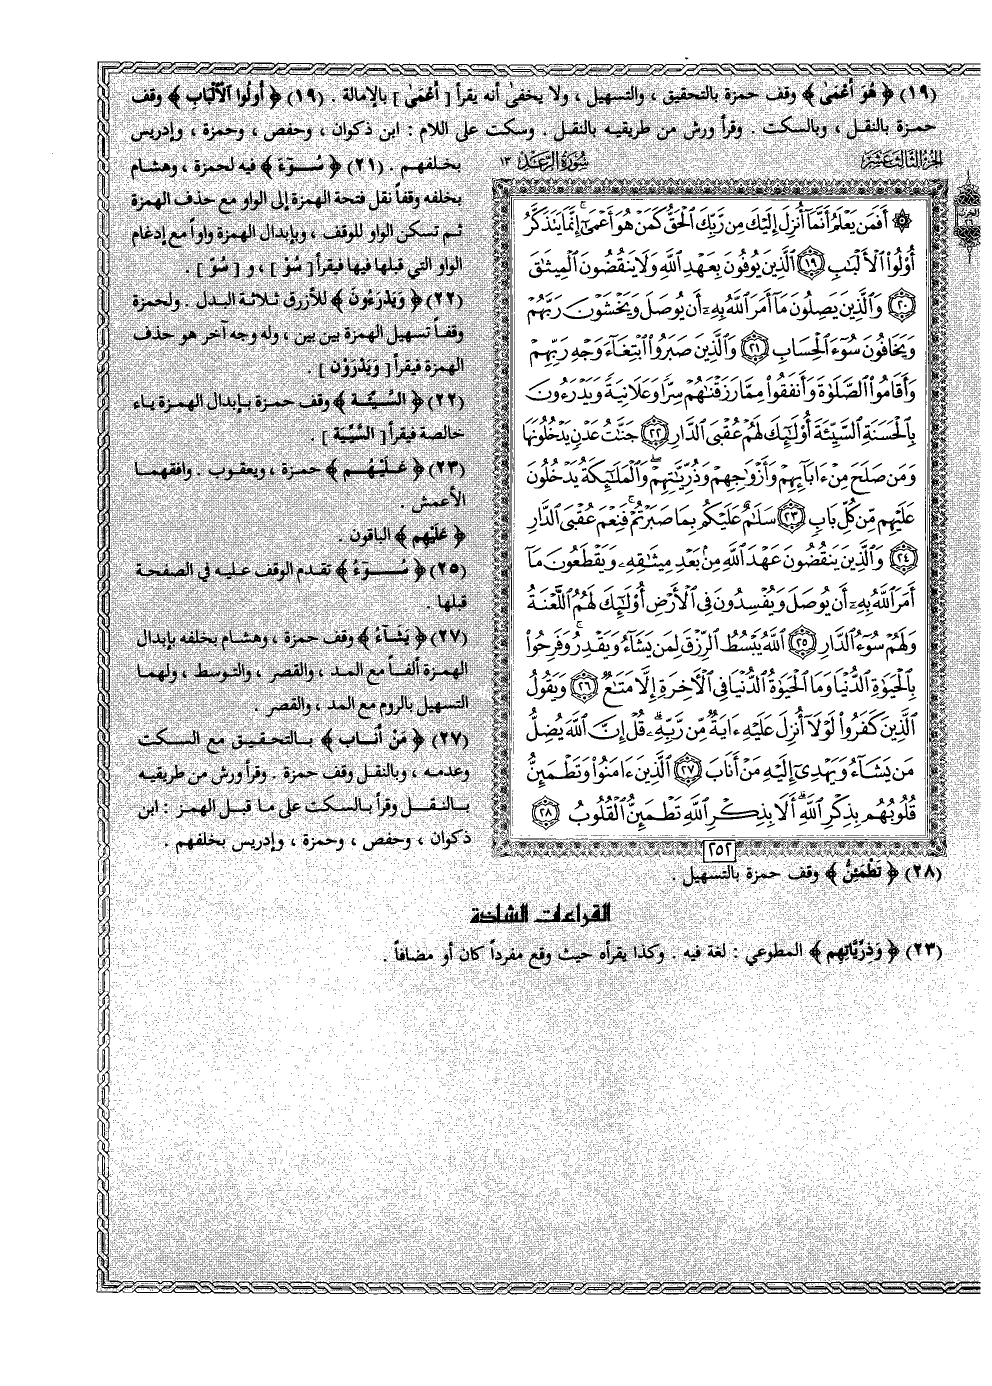 (١٩) ﴿ هُوَ أَعْمَىٰ ﴾ وقف حمزة بالتحقيق ، والتسهيل ، ولا يخفىٰ أنه يقرأ [ أَعْمَىٰ ] بالإمالة . (١٩) ﴿ أُولُوا الْأَلْبَابِ ﴾ وقف
حمزة بالنقل ، وبالسكت . وقرأ ورش من طريقيه بالنقل . وسكت على اللام : ابن ذكوان ، وحفص ، وحمزة ، وإدريس
بخلفهم . (٢١) ﴿ سُوءَ ﴾ فيه لحمزة ، وهشام
بخلفه وقفاً نقل فتحة الهمزة إلى الواو مع حذف الهمزة
ثم تسكن الواو للوقف ، وبإبدال الهمزة واواً مع إدغام
الواو التي قبلها فيها فيقرأ [ سُوْ ] ، و [ سُوّ ] .
(٢٢) ﴿ وَيَدْرَءُونَ ﴾ للأزرق ثلاثة البدل . ولحمزة
وقفاً تسهيل الهمزة بين بين ، وله وجه آخر هو حذف
الهمزة فيقرأ [ وَيَدْرَوْنَ ] .
(٢٢) ﴿ السَّيِّئَةَ ﴾ وقف حمزة بإبدال الهمزة ياء
خالصة فيقرأ [ السَّيِّيَة ] .
(٢٣) ﴿ عَلَيْهُم ﴾ حمزة ، ويعقوب . وافقهما
الأعمش .
﴿ عَلَيْهِم ﴾ الباقون .
(٢٥) ﴿ سُوءُ ﴾ تقدم الوقف عليه في الصفحة
قبلها .
(٢٧) ﴿ يَشَاءُ ﴾ وقف حمزة ، وهشام بخلفه بإبدال
الهمزة ألفاً مع المد ، والقصر ، والتوسط ، ولهما
التسهيل بالروم مع المد ، والقصر .
(٢٧) ﴿ مَنْ أَنَابَ ﴾ بالتحقيق مع السكت
وعدمه ، وبالنقل وقف حمزة . وقرأ ورش من طريقيه
بالنقل وقرأ بالسكت على ما قبل الهمز : ابن
ذكوان ، وحفص ، وحمزة ، وإدريس بخلفهم .
الجزء الثالث عشر
سورة الرعد ١٣
۞ أَفَمَن يَعْلَمُ أَنَّمَآ أُنزِلَ إِلَيْكَ مِن رَّبِّكَ ٱلْحَقُّ كَمَنْ هُوَ أَعْمَىٰٓ ۚ إِنَّمَا يَتَذَكَّرُ
أُوْلُوا۟ ٱلْأَلْبَٰبِ ١٩ ٱلَّذِينَ يُوفُونَ بِعَهْدِ ٱللَّهِ وَلَا يَنقُضُونَ ٱلْمِيثَٰقَ
٢٠ وَٱلَّذِينَ يَصِلُونَ مَآ أَمَرَ ٱللَّهُ بِهِۦٓ أَن يُوصَلَ وَيَخْشَوْنَ رَبَّهُمْ
وَيَخَافُونَ سُوٓءَ ٱلْحِسَابِ ٢١ وَٱلَّذِينَ صَبَرُوا۟ ٱبْتِغَآءَ وَجْهِ رَبِّهِمْ
وَأَقَامُوا۟ ٱلصَّلَوٰةَ وَأَنفَقُوا۟ مِمَّا رَزَقْنَٰهُمْ سِرًّا وَعَلَانِيَةً وَيَدْرَءُونَ
بِٱلْحَسَنَةِ ٱلسَّيِّئَةَ أُو۟لَٰٓئِكَ لَهُمْ عُقْبَى ٱلدَّارِ ٢٢ جَنَّٰتُ عَدْنٍ يَدْخُلُونَهَا
وَمَن صَلَحَ مِنْ ءَابَآئِهِمْ وَأَزْوَٰجِهِمْ وَذُرِّيَّٰتِهِمْ ۖ وَٱلْمَلَٰٓئِكَةُ يَدْخُلُونَ
عَلَيْهِم مِّن كُلِّ بَابٍ ٢٣ سَلَٰمٌ عَلَيْكُم بِمَا صَبَرْتُمْ ۚ فَنِعْمَ عُقْبَى ٱلدَّارِ
٢٤ وَٱلَّذِينَ يَنقُضُونَ عَهْدَ ٱللَّهِ مِنۢ بَعْدِ مِيثَٰقِهِۦ وَيَقْطَعُونَ مَآ
أَمَرَ ٱللَّهُ بِهِۦٓ أَن يُوصَلَ وَيُفْسِدُونَ فِى ٱلْأَرْضِ ۙ أُو۟لَٰٓئِكَ لَهُمُ ٱللَّعْنَةُ
وَلَهُمْ سُوٓءُ ٱلدَّارِ ٢٥ ٱللَّهُ يَبْسُطُ ٱلرِّزْقَ لِمَن يَشَآءُ وَيَقْدِرُ ۚ وَفَرِحُوا۟
بِٱلْحَيَوٰةِ ٱلدُّنْيَا وَمَا ٱلْحَيَوٰةُ ٱلدُّنْيَا فِى ٱلْءَاخِرَةِ إِلَّا مَتَٰعٌ ٢٦ وَيَقُولُ
ٱلَّذِينَ كَفَرُوا۟ لَوْلَآ أُنزِلَ عَلَيْهِ ءَايَةٌ مِّن رَّبِّهِۦ ۗ قُلْ إِنَّ ٱللَّهَ يُضِلُّ
مَن يَشَآءُ وَيَهْدِىٓ إِلَيْهِ مَنْ أَنَابَ ٢٧ ٱلَّذِينَ ءَامَنُوا۟ وَتَطْمَئِنُّ
قُلُوبُهُم بِذِكْرِ ٱللَّهِ ۗ أَلَا بِذِكْرِ ٱللَّهِ تَطْمَئِنُّ ٱلْقُلُوبُ ٢٨
٢٥٢
(٢٨) ﴿ تَطْمَئِنُّ ﴾ وقف حمزة بالتسهيل .
القراءات الشاذة
(٢٣) ﴿ وَذِرِّيَّاتِهِم ﴾ المطوعي : لغة فيه . وكذا يقرأه حيث وقع مفرداً كان أو مضافاً .